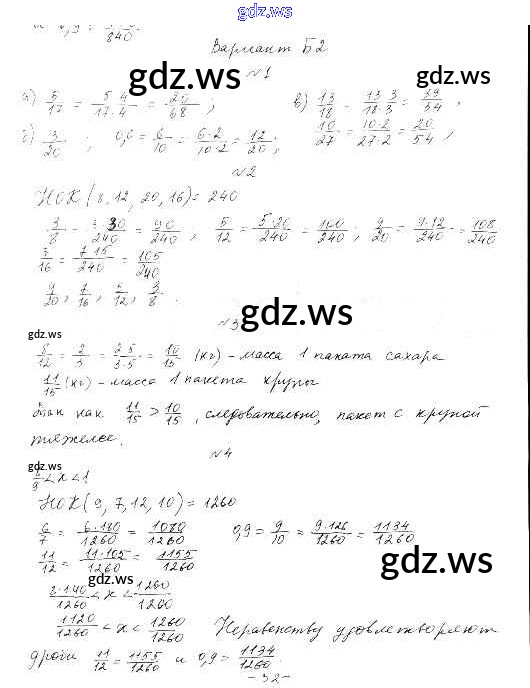 gdz.ws
840
Вариант Б2
№1
а) 5/17 = 5·4/17·4 = 20/68 ; в) 13/18 = 13·3/18·3 = 39/54 ,
б) 3/20 ; 0,6 = 6/10 = 6·2/10·2 = 12/20 ; 10/27 = 10·2/27·2 = 20/54 ,
№2
НОК (8, 12, 20, 16) = 240
3/8 = 3·30/240 = 90/240 , 5/12 = 5·20/240 = 100/240 ; 9/20 = 9·12/240 = 108/240
7/16 = 7·15/240 = 105/240
9/20 , 7/16 , 5/12 , 3/8 .
№3
8/12 = 2/3 = 2·5/3·5 = 10/15 (кг) – масса 1 пакета сахара
11/15 (кг) – масса 1 пакета крупы
Так как 11/15 > 10/15 , следовательно, пакет с крупой
тяжелее.
№4
8/9 < x < 1
НОК (9, 7, 12, 10) = 1260
6/7 = 6·180/1260 = 1080/1260 0,9 = 9/10 = 9·126/1260 = 1134/1260
11/12 = 11·105/1260 = 1155/1260
8·140/1260 < x < 1260/1260
1120/1260 < x < 1260/1260 Неравенству удовлетворяют
дроби 11/12 = 1155/1260 и 0,9 = 1134/1260 .
– 32 –
gdz.ws
gdz.ws
gdz.ws
gdz.ws
gdz.ws
gdz.ws
gdz.ws
gdz.ws